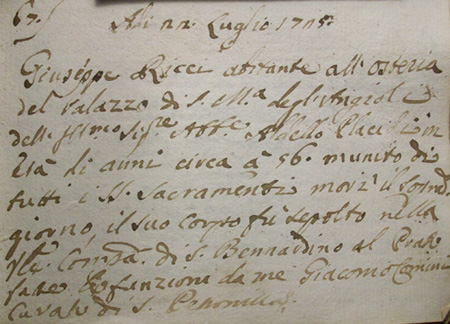 67.
Adi 22. Luglio 1705.
Giuseppe Ricci abitante all'osteria
del Palazzo di S. M.a degl'Angioli
dell' Ill.mo Sig.re Abb.e Placidi in
Età di anni circa à 56. munito di
tutti i SS. Sacramenti morì il sud.
giorno, il suo corpo fù sepolto nella
Ven. Comp.a di S. Bernardino al Prato
fatte le funzioni da me Giacomo
Curato di S. Petronilla.